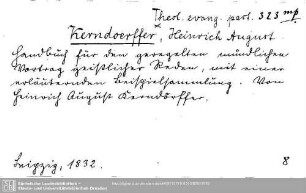 Theol. evang. part. 323 mp
Kerndoerffer, Heinrich August
Handbuch für den geregelten mündlichen
Vortrag geistlicher Reden, mit einer
erläuternden Beispielsammlung. Von
Heinrich August Kerndörffer.
Leipzig, 1832. 8
Sächsische Landesbibliothek -
Staats- und Universitätsbibliothek Dresden